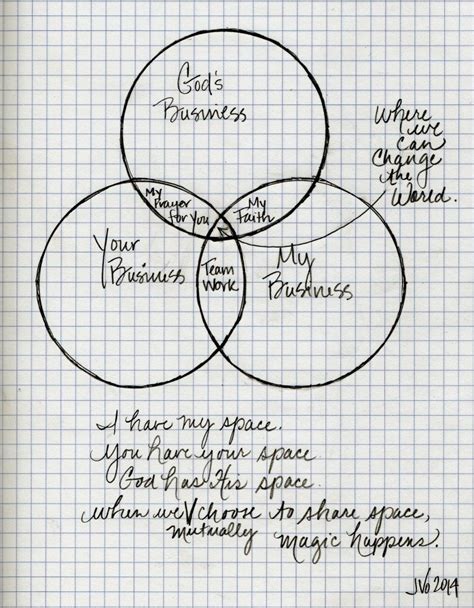 God's
Business
Where
we
can
Change
the
World.
My
Prayer
for You
My
Faith
Your
Business
Team
Work
My
Business
I have my space.
You have your space
God has His space.
When we V choose to share space,
mutually
magic happens.
JVo 2014